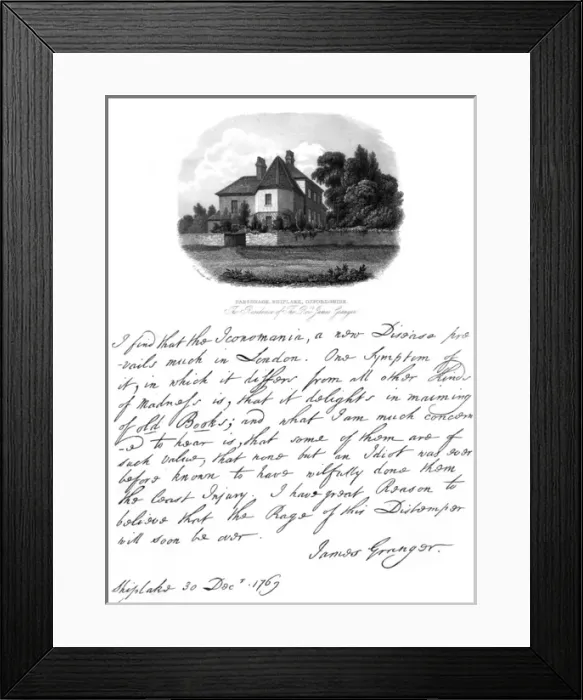 PARSONAGE, SHIPLAKE, OXFORDSHIRE.
The Residence of The Revd. James Granger.
I find that the Iconomania, a new Disease pre
-vails much in London. One Symptom of
it, in which it differs from all other Kinds
of Madness is, that it delights in maiming
of old Books; and what I am much concern
-ed to hear is, that some of them are of
such value, that none but an Idiot was ever
before known to have wilfully done them
the least Injury. I have great Reason to
believe that the Rage of this Distemper
will soon be over.
James Granger.
Shiplake 30 Decr. 1769